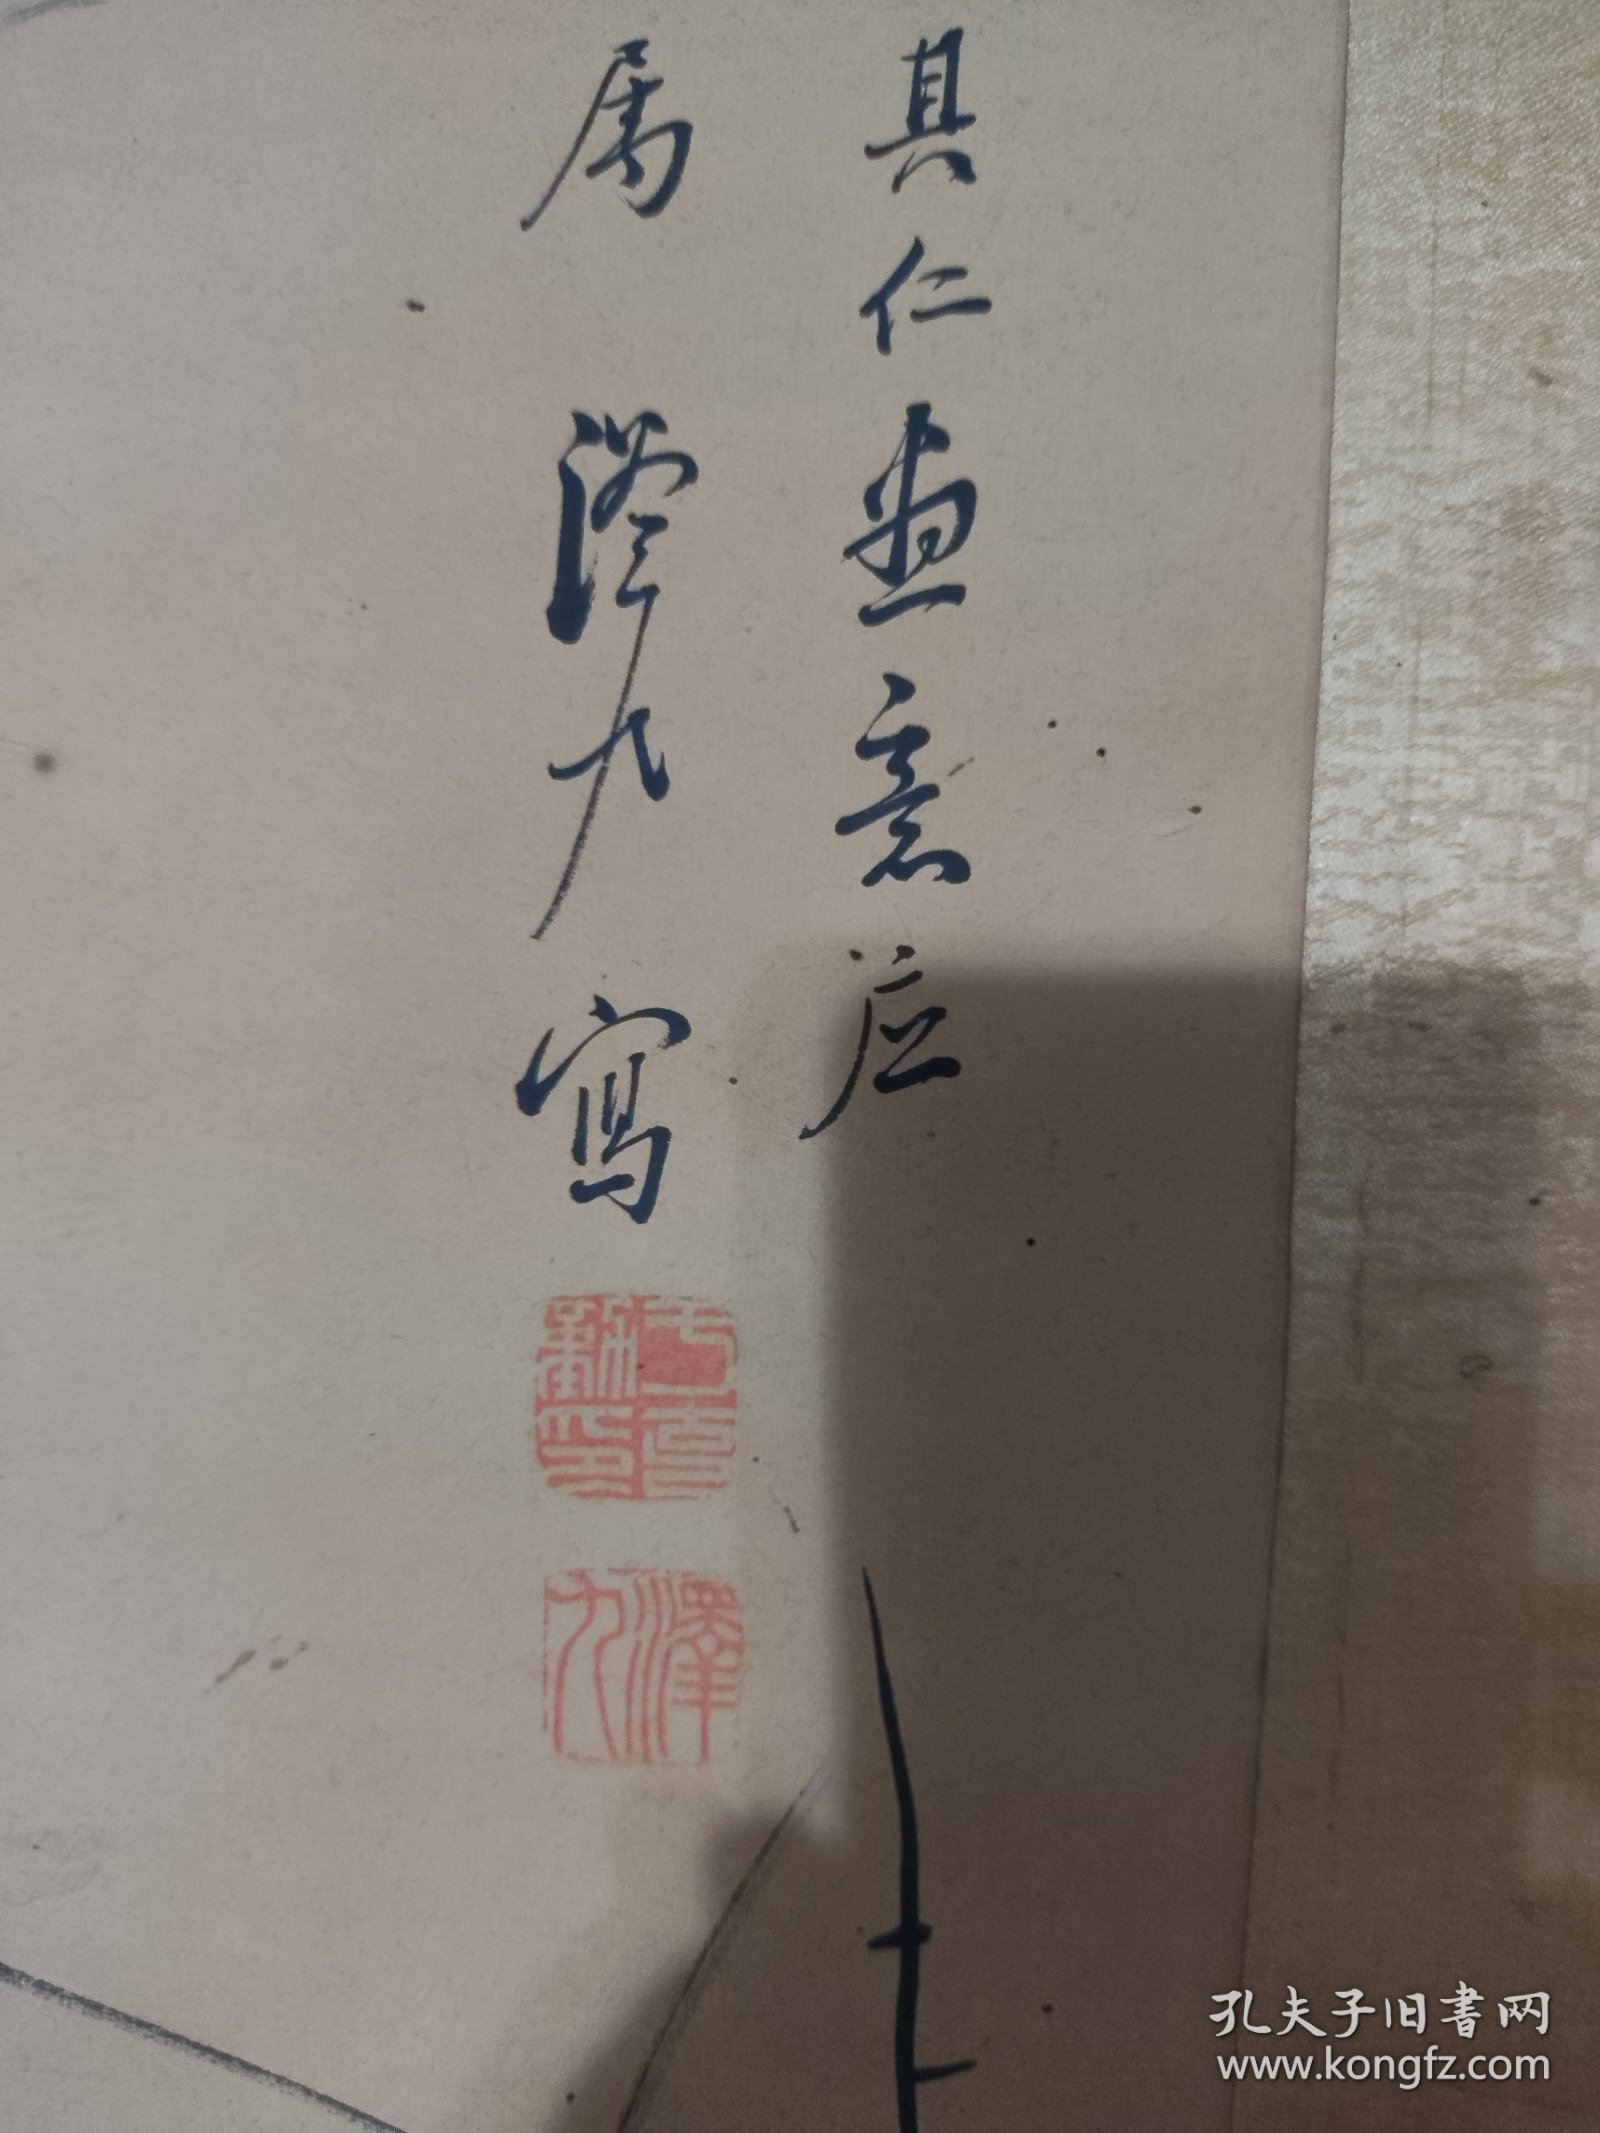 具仁画意应
属 泽九写
澤九
孔夫子旧書网
www.kongfz.com